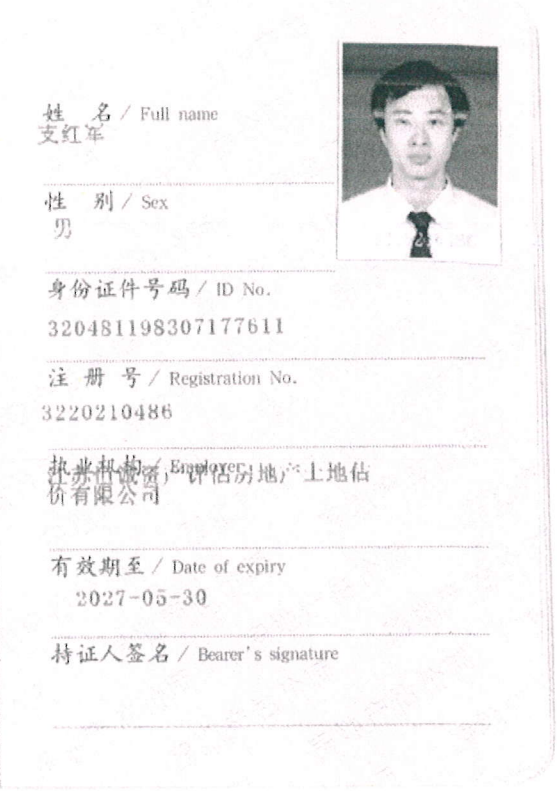 姓 名 / Full name
支红军
性 别 / Sex
男
身份证件号码 / ID No.
320481198307177611
注 册 号 / Registration No.
3220210486
执业机构 / Employer
江苏 诚资产评估房地产土地估
价有限公司
有效期至 / Date of expiry
2027-05-30
持证人签名 / Bearer's signature